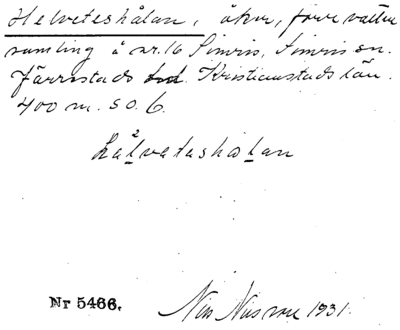 Helveteshålan, åker, förr vatten
samling å nr. 16 Simris, Simris sn.
Järrestads hd. Kristianstads län.
400 m. S.O. 6.
Nr 5466. Nils Nilsson 1931.